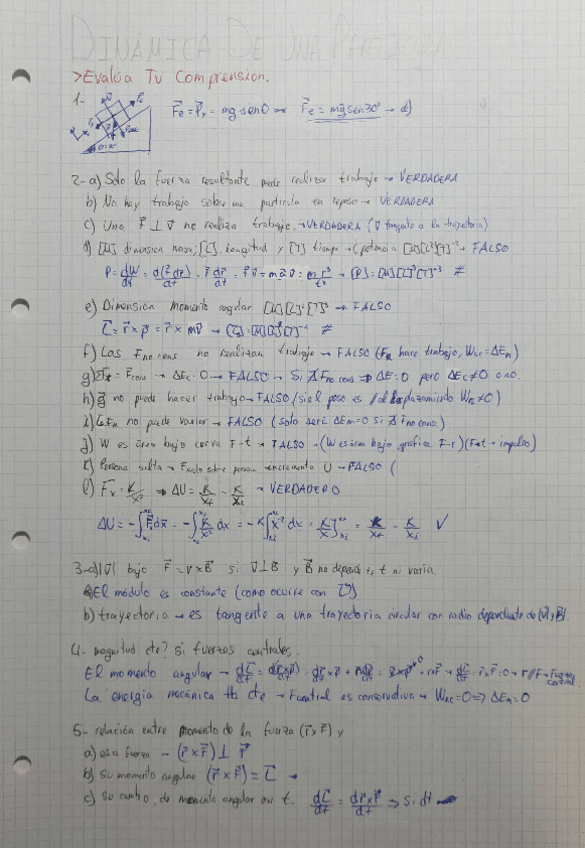 DINÁMICA DE UNA PARTÍCULA
>Evalúa Tu Comprension.
1- F⃗e = P⃗x = mg senθ ⇒ F⃗e = mg sen30° → d)
2- a) Solo la fuerza resultante puede realizar trabajo → VERDADERA
b) No hay trabajo sobre una partícula en reposo → VERDADERA
c) Una F⃗ ⊥ v⃗ no realiza trabajo. → VERDADERA (v⃗ tangente a la trayectoria)
d) [M] dimension masa, [L] longitud y [T] tiempo → (potencia [M][L]²[T]⁻² → FALSO
P = dW/dt = d(F⃗ dr⃗)/dt = F⃗ dr⃗/dt = F⃗ v⃗ = m a⃗ v⃗ = → [P] = [M][L]²[T]⁻³ ≠
e) Dimensión momento angular → FALSO
L⃗ = r⃗ × p⃗ = r⃗ × mv⃗ → ≠
f) Las F no cons no realizan trabajo → FALSO (hace trabajo, Wnc = ΔEm)
g) = Fcons → ΔEc = 0 → FALSO → Si ∄ Fno cons ⇒ ΔE = 0 pero ΔEc ≠ 0 o no.
h) g⃗ no puede hacer trabajo → FALSO (si el peso es // al desplazamiento ≠ 0)
i) La Em no puede variar → FALSO (solo será ΔEm = 0 si ∄ F no cons.)
j) W es área bajo curva F-t → FALSO → (W es área bajo gráfica F-r) (F·t = impulso)
k) Persona salta → Fsuelo sobre persona incrementa U → FALSO (
l) Fx = K/x² ⇒ ΔU = K/xf - K/xi → VERDADERO
ΔU = -∫ F⃗ dx⃗ = -∫ K/x² dx = -K ∫ x⁻² dx = K/x ] = K/xf - K/xi ✓
3- a) |v⃗| bajo F⃗ = v⃗ × B⃗ si v⃗ ⊥ B⃗ y B⃗ no depende t, ni varia
El módulo es constante (como ocurre con
b) trayectoria → es tangente a una trayectoria circular con radio dependiente de |v⃗| y |B⃗|
4- magnitud cte? si fuerzas centrales.
El momento angular → dL⃗/dt = d(r⃗×p⃗)/dt = = r⃗×F⃗ = 0 → r // F → Fuerza central
La energía mecánica cte → Fcentral es conservativa → Wnc = 0 ⇒ ΔEm = 0
5- relación entre momento de la fuerza (r⃗ × F⃗) y
a) esa fuerza → (r⃗ × F⃗) ⊥ F⃗
b) su momento angular (r⃗ × F⃗) = L⃗
c) Su cambio de momento angular en t. dL⃗/dt = ⇒ si dt